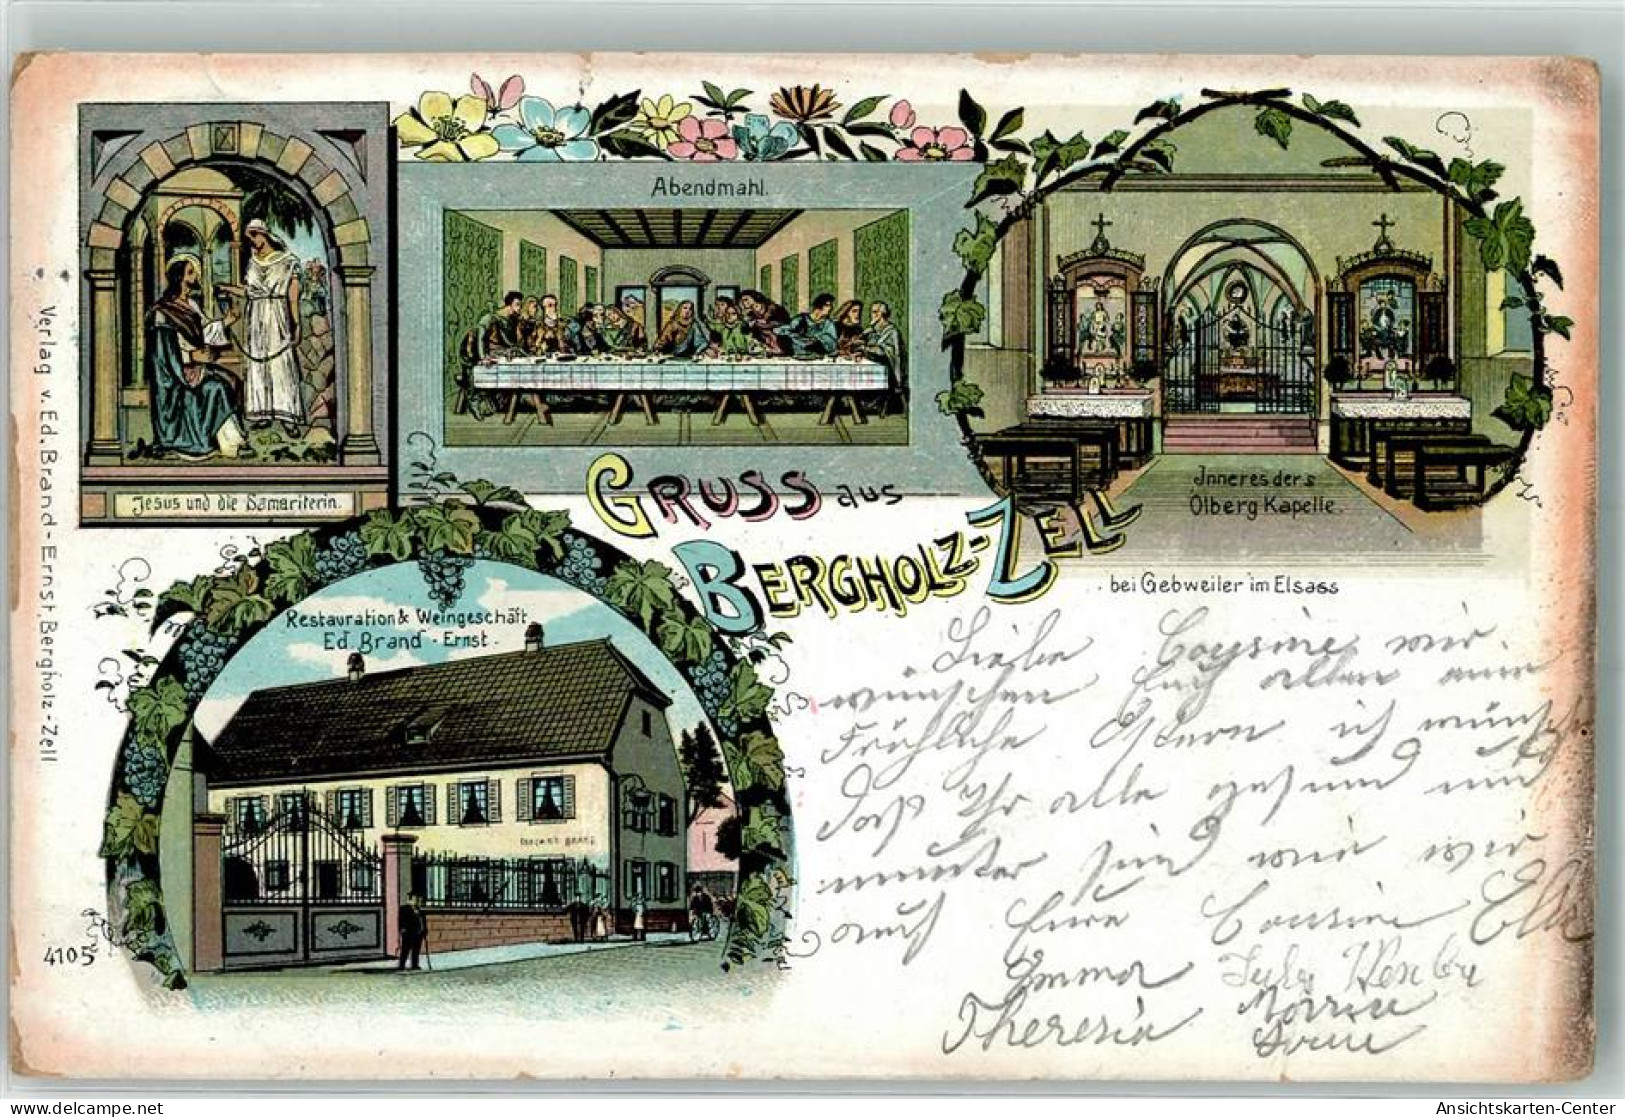 Abendmahl.
Jesus und die Samariterin.
Inneres der s
Ölberg Kapelle.
GRUSS aus
BERGHOLZ-ZELL
bei Gebweiler im Elsass
Restauration & Weingeschäft
Ed. Brand - Ernst.
Verlag v. Ed. Brand - Ernst, Bergholz-Zell
4105
Liebe Cousine wir
wünschen Euch allen eine
Fröhliche Ostern ich wünsche
daß Ihr alle gesund und
munter sind wie wir
auch Eure Cousine
Emma
Theresia
AnsichtsKarten-Center